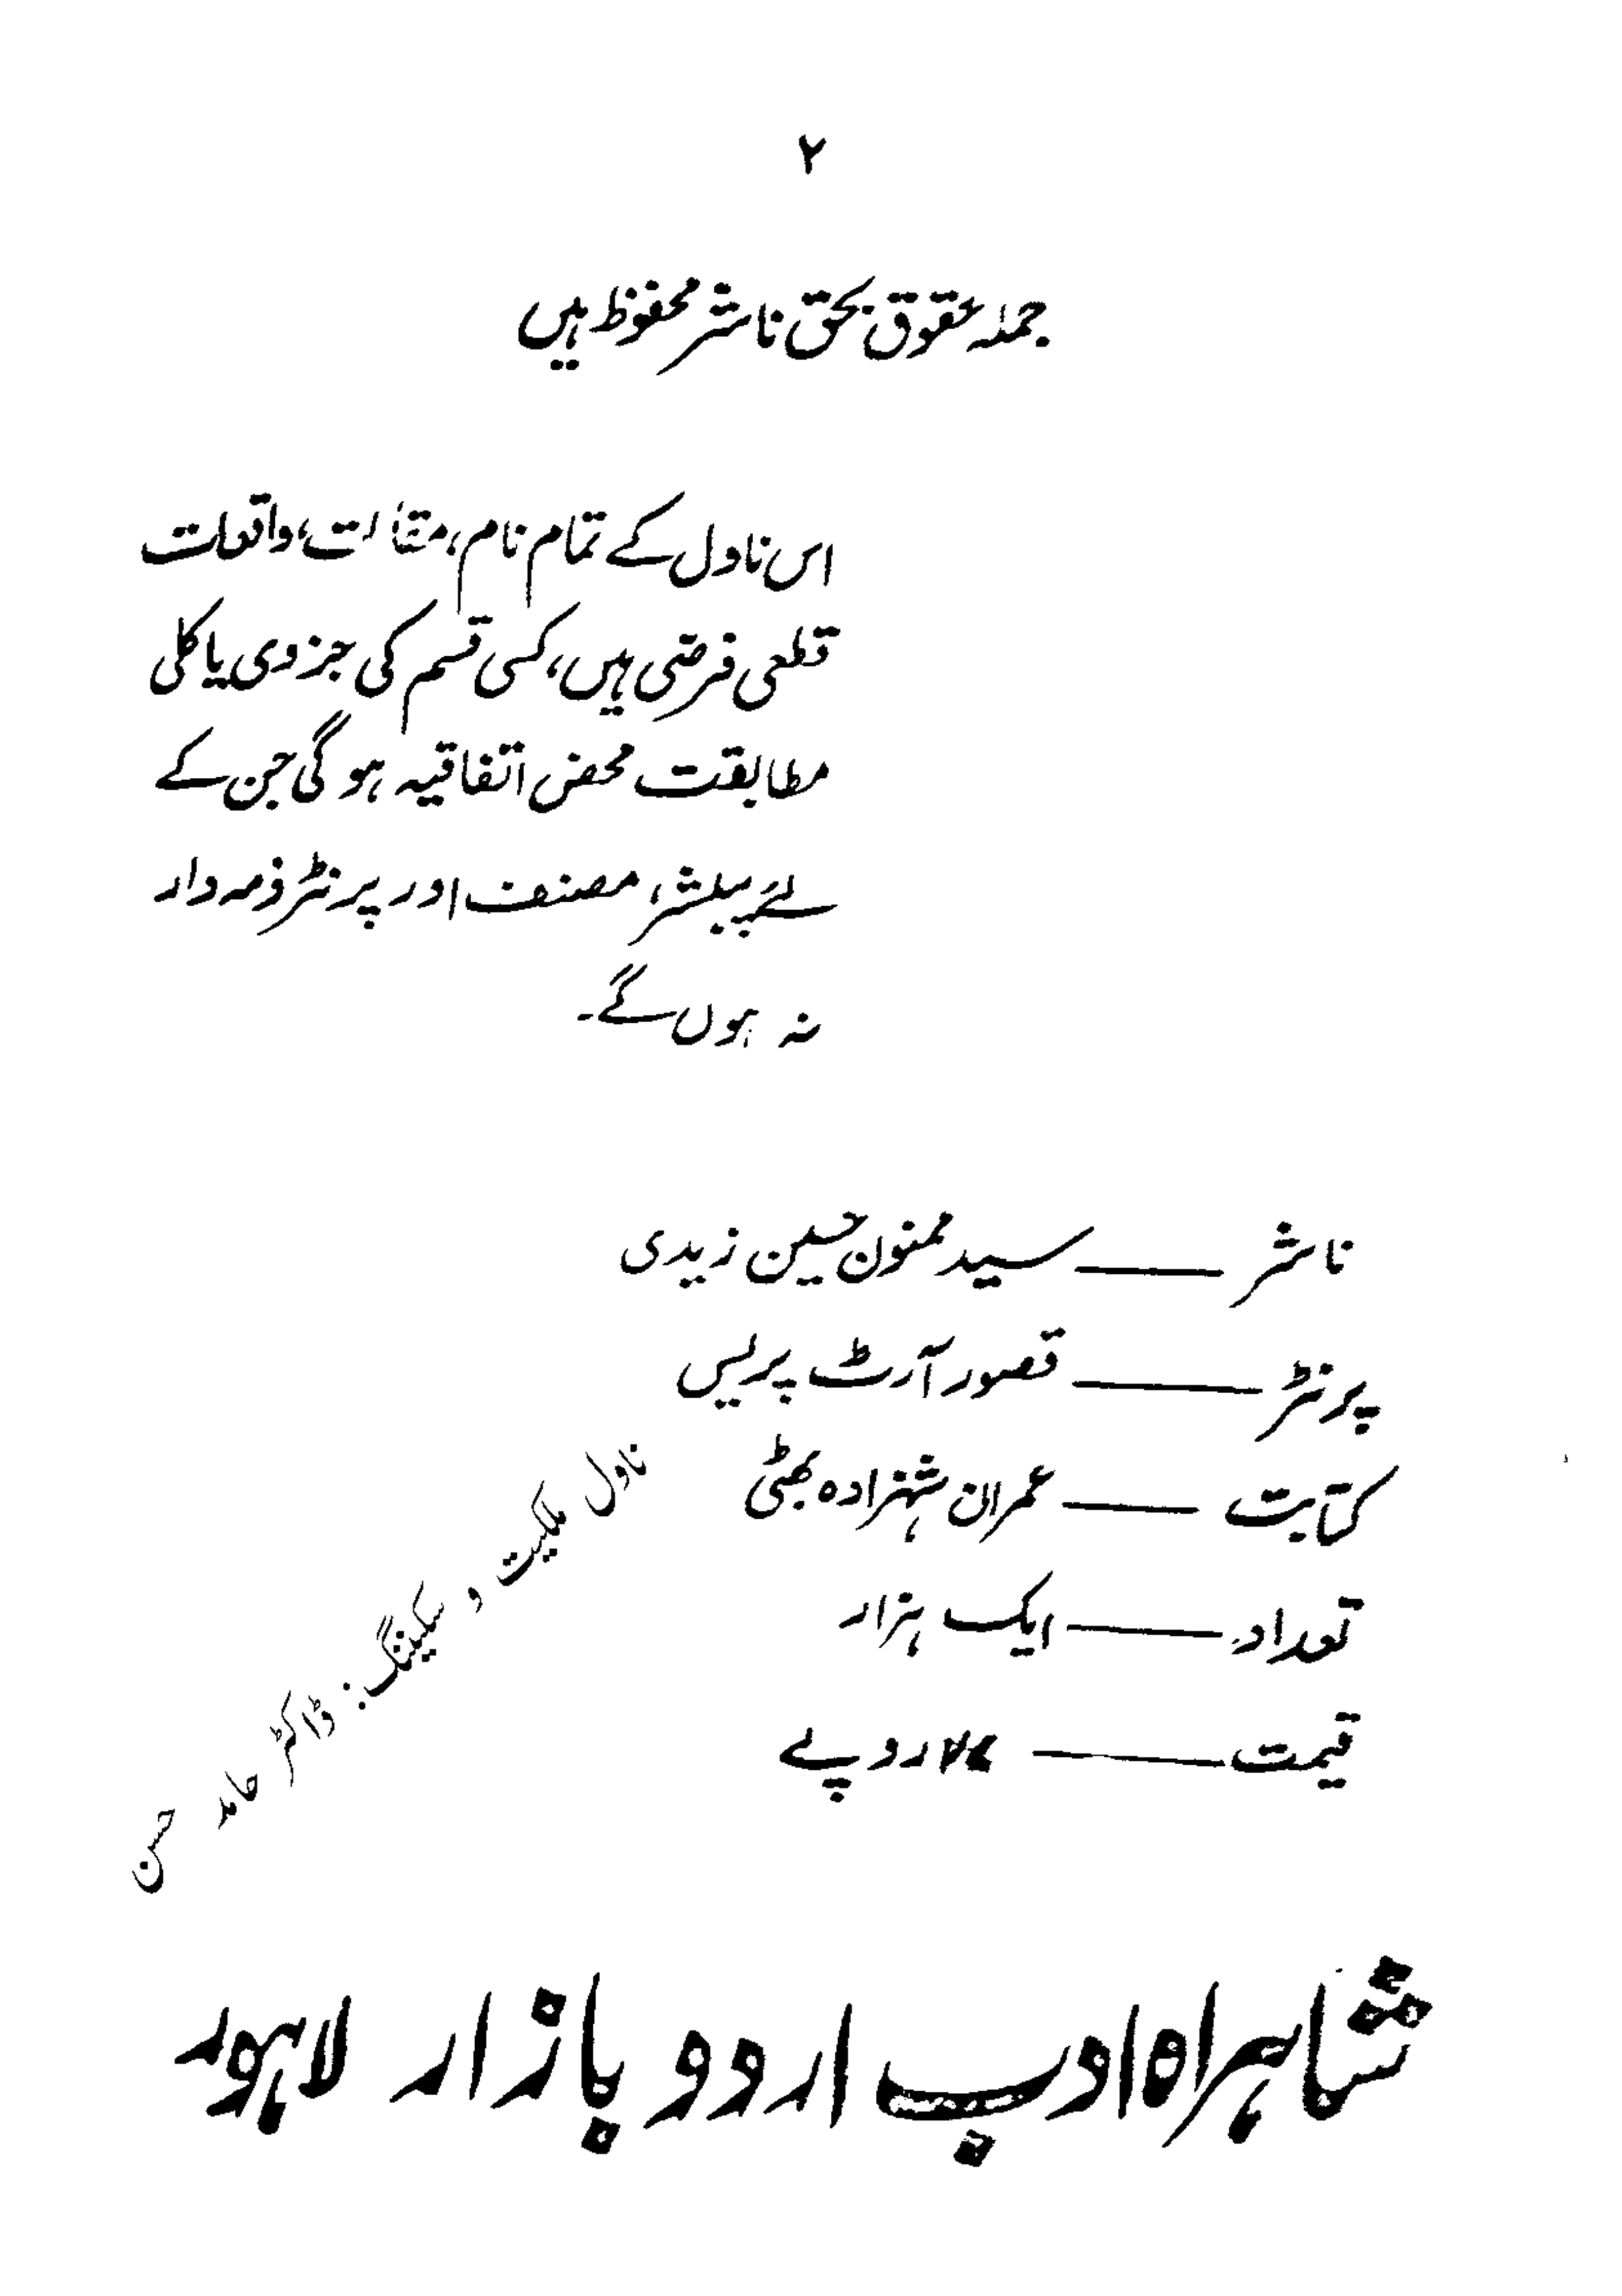 ۲
جملہ حقوق بحق ناشر محفوظ ہیں
اس ناول کے تمام نام، مقامات، واقعات
قطعی فرضی ہیں، کسی قسم کی جزوی یا کلی
مطابقت محض اتفاقیہ ہوگی جن کے
لئے پبلشر، مصنف اور پرنٹر ذمہ دار
نہ ہوں گے۔
ناشر ——— سید ممنون حسین زیدی
پرنٹر ——— قصور آرٹ پریس
کتابت ——— عمران شہزادہ بھٹی
تعداد ——— ایک ہزار
قیمت ——— روپے
ناول ملکیت و سکیننگ: ڈاکٹر حامد حسن
شاہراہ ادب اردو بازار لاہور